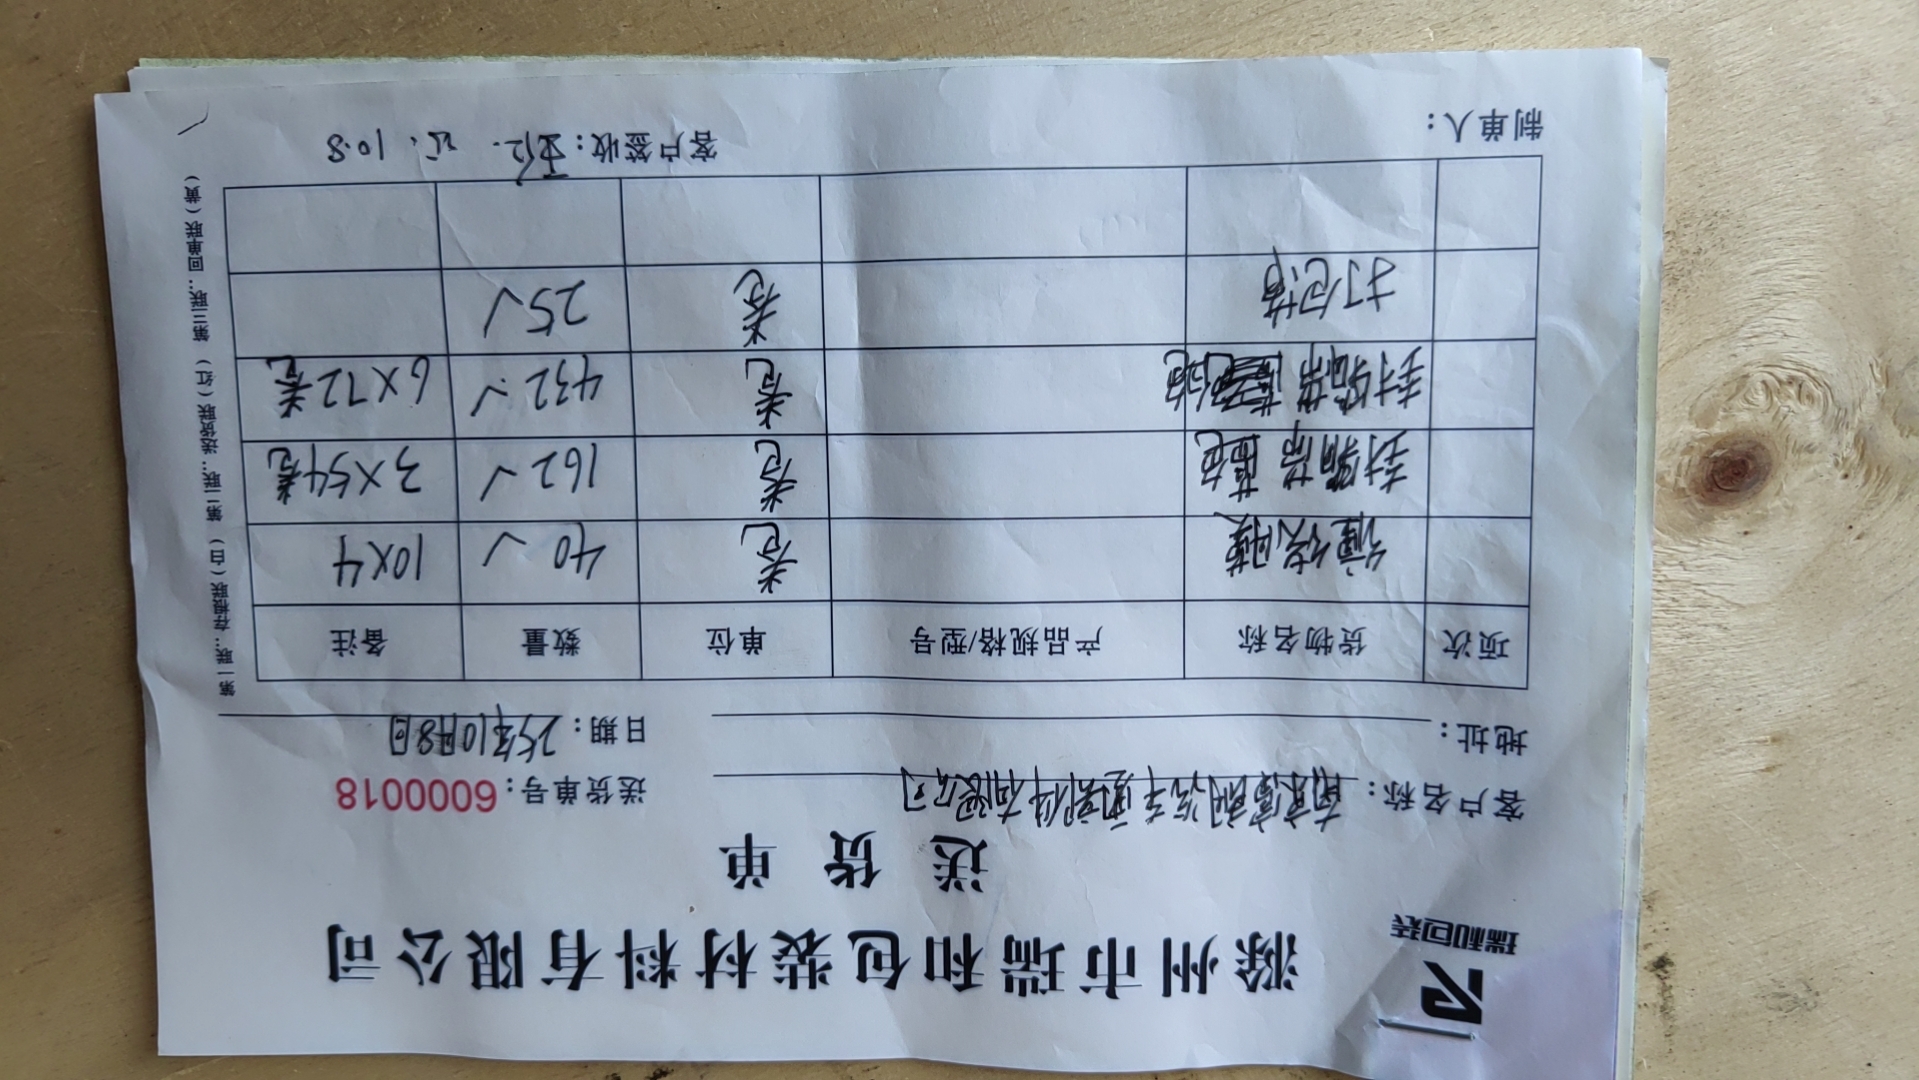 瑞和包装
滁州市瑞和包装材料有限公司
送货单
客户名称：南京富朗汽车零部件有限公司 送货单号：6000018
地址： 日期：25年10月8日
项次 货物名称 产品规格/型号 单位 数量 备注
缠绕膜 卷 40√ 10×4
封箱带 蓝色 卷 162√ 3×54卷
封箱带 卷 432√ 6×72卷
打包带 卷 25√
制单人： 客户签收： 10.8
第一联：存根联（白） 第二联：送货联（红） 第三联：回单联（黄）